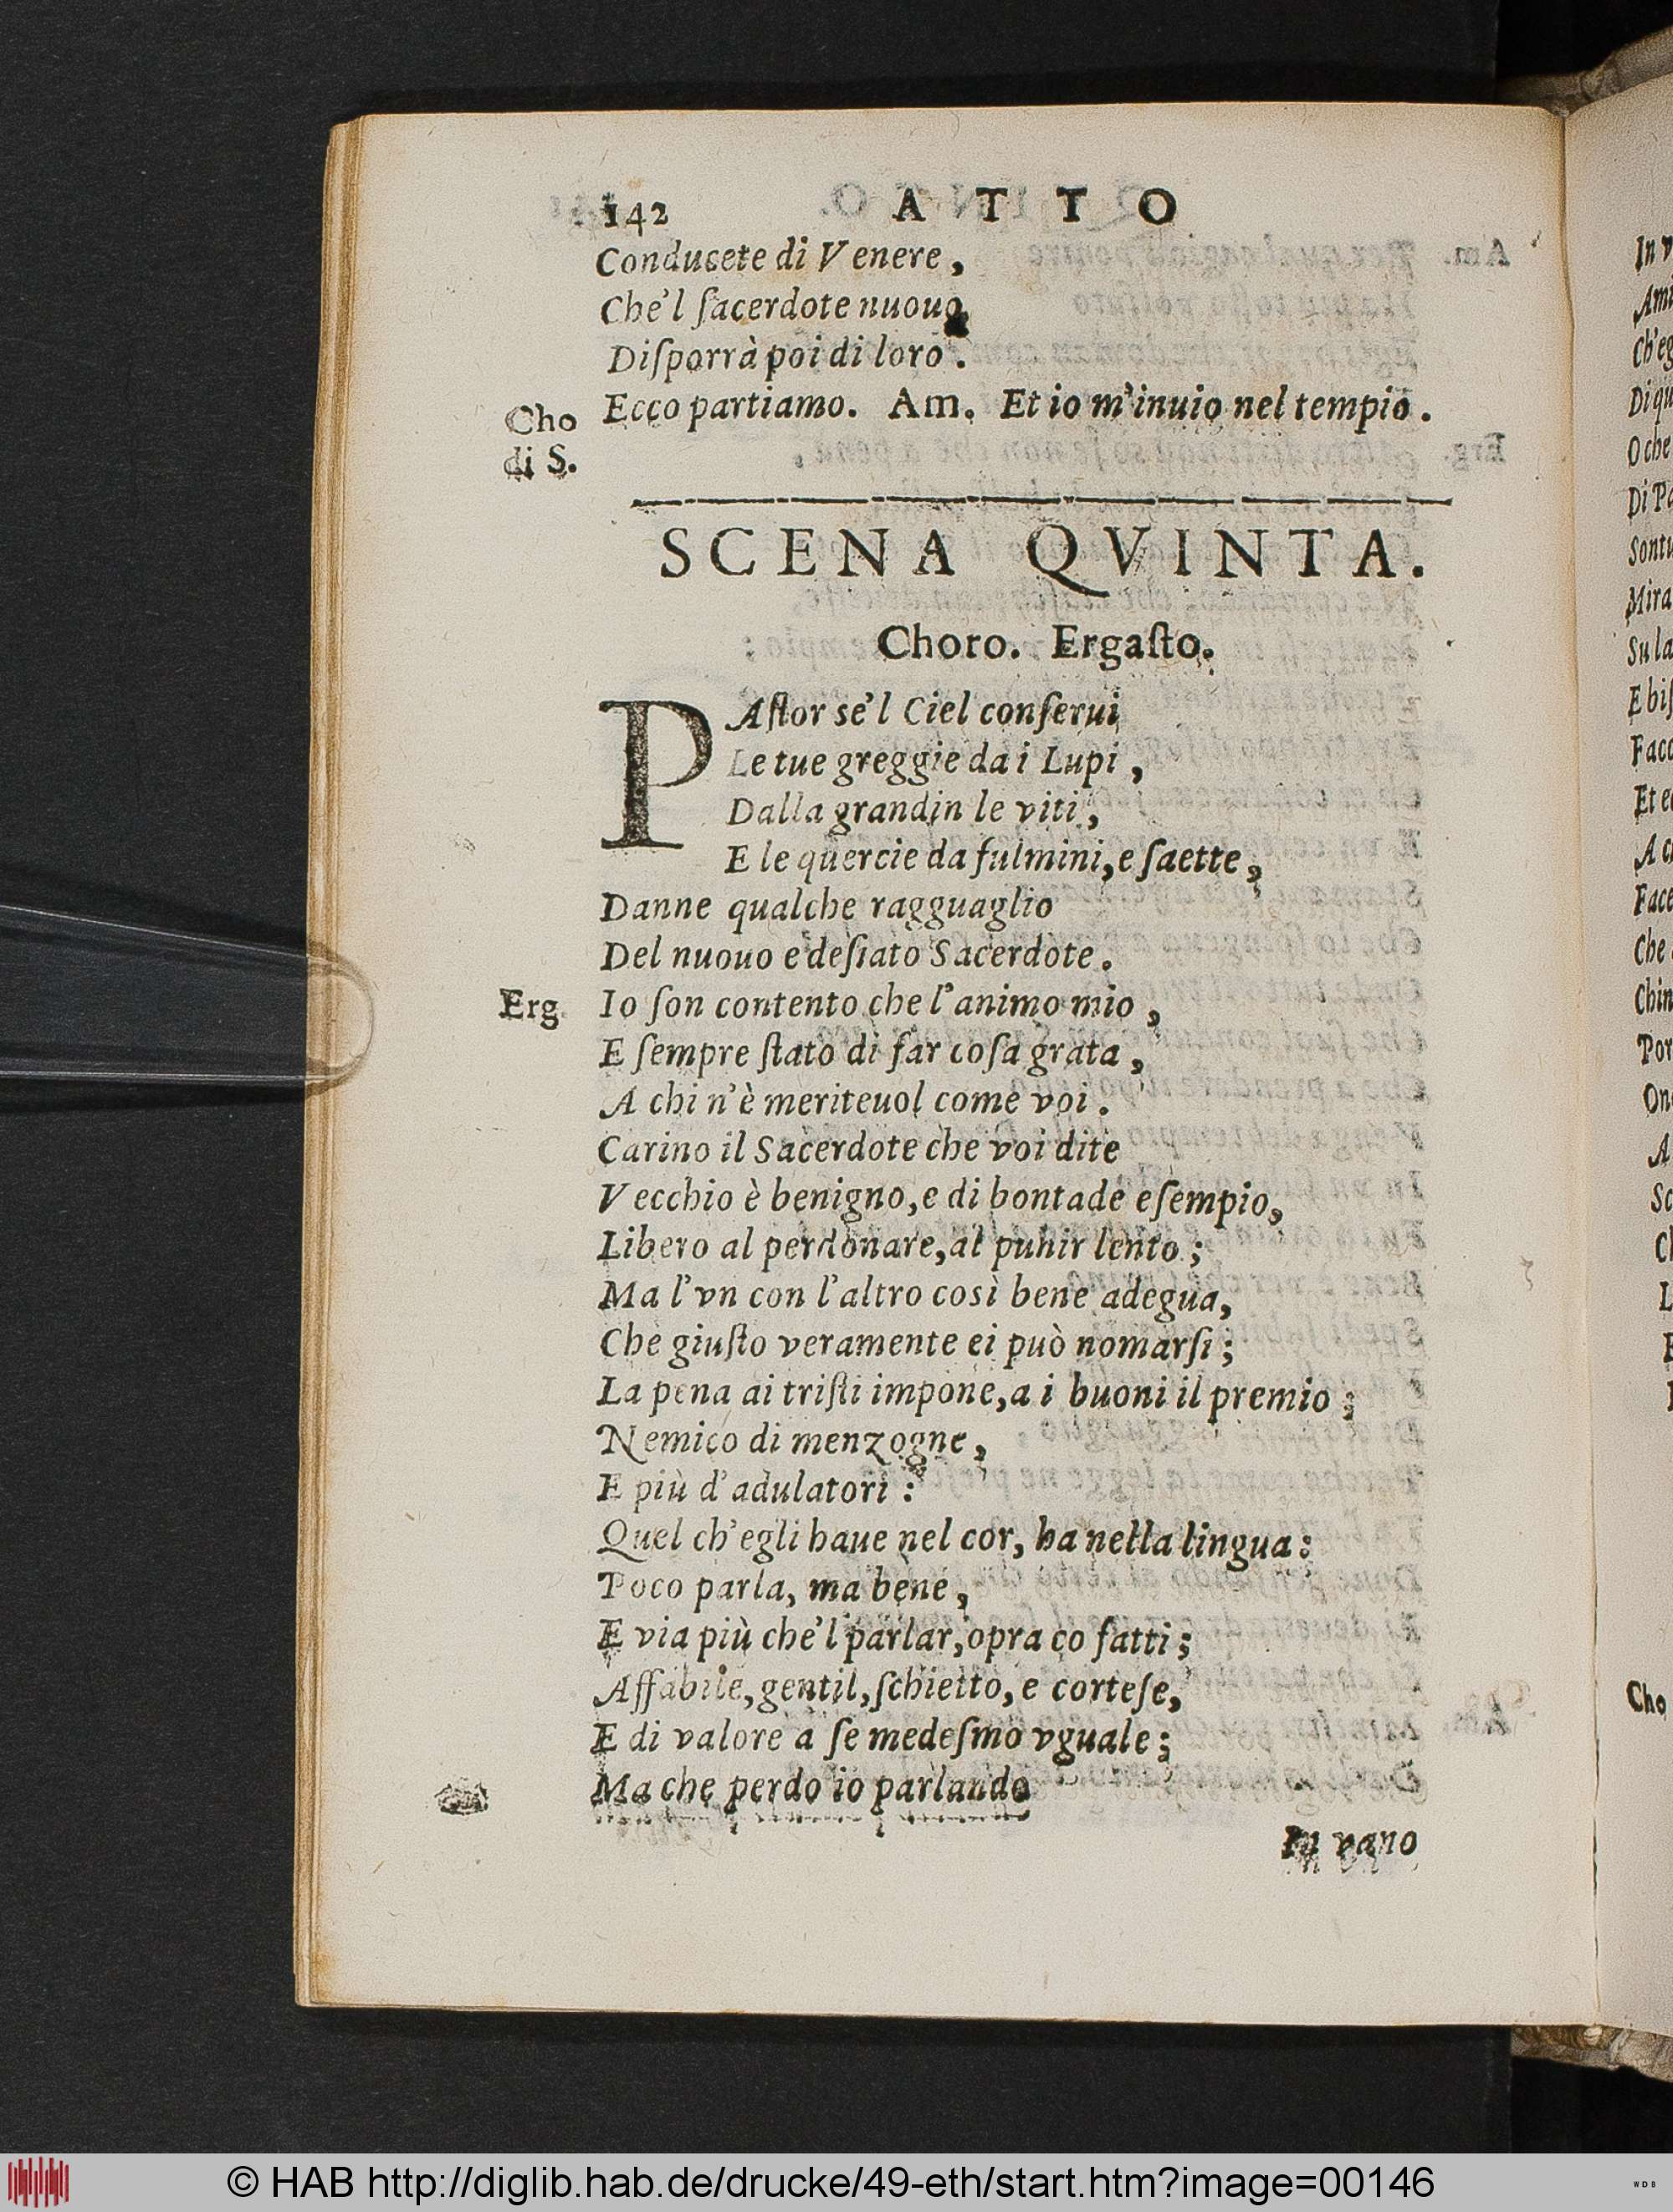 142 ATTO
Conducete di Venere,
Che'l ſacerdote nuouo
Diſporrà poi di loro.
Cho di S. Ecco partiamo. Am. Et io m'inuio nel tempio.
SCENA QVINTA.
Choro. Ergaſto.
PAſtor se'l Ciel conſerui
Le tue greggie da i Lupi,
Dalla grandin le viti,
E le quercie da fulmini, e ſaette,
Danne qualche ragguaglio
Del nuouo e deſiato Sacerdote.
Erg. Io ſon contento che l'animo mio,
E ſempre ſtato di far coſa grata,
A chi n'è meriteuol come voi.
Carino il Sacerdote che voi dite
Vecchio è benigno, e di bontade eſempio,
Libero al perdonare, al punir lento;
Ma l'vn con l'altro così bene adegua,
Che giuſto veramente ei può nomarſi;
La pena ai triſti impone, a i buoni il premio;
Nemico di menzogne,
E più d'adulatori:
Quel ch'egli haue nel cor, ha nella lingua:
Poco parla, ma bene,
E via più che'l parlar, opra co fatti;
Affabile, gentil, ſchietto, e corteſe,
E di valore a ſe medeſmo vguale;
Ma che perdo io parlando
In vano
In v
Ami
Ch'eg
Di qu
O che
Di Pa
Sontu
Mira
Su la
E biſ
Facc
Et e
A c
Face
Che
Chin
Por
On
A
Sc
Cl
L
Cho
© HAB http://diglib.hab.de/drucke/49-eth/start.htm?image=00146
WDB